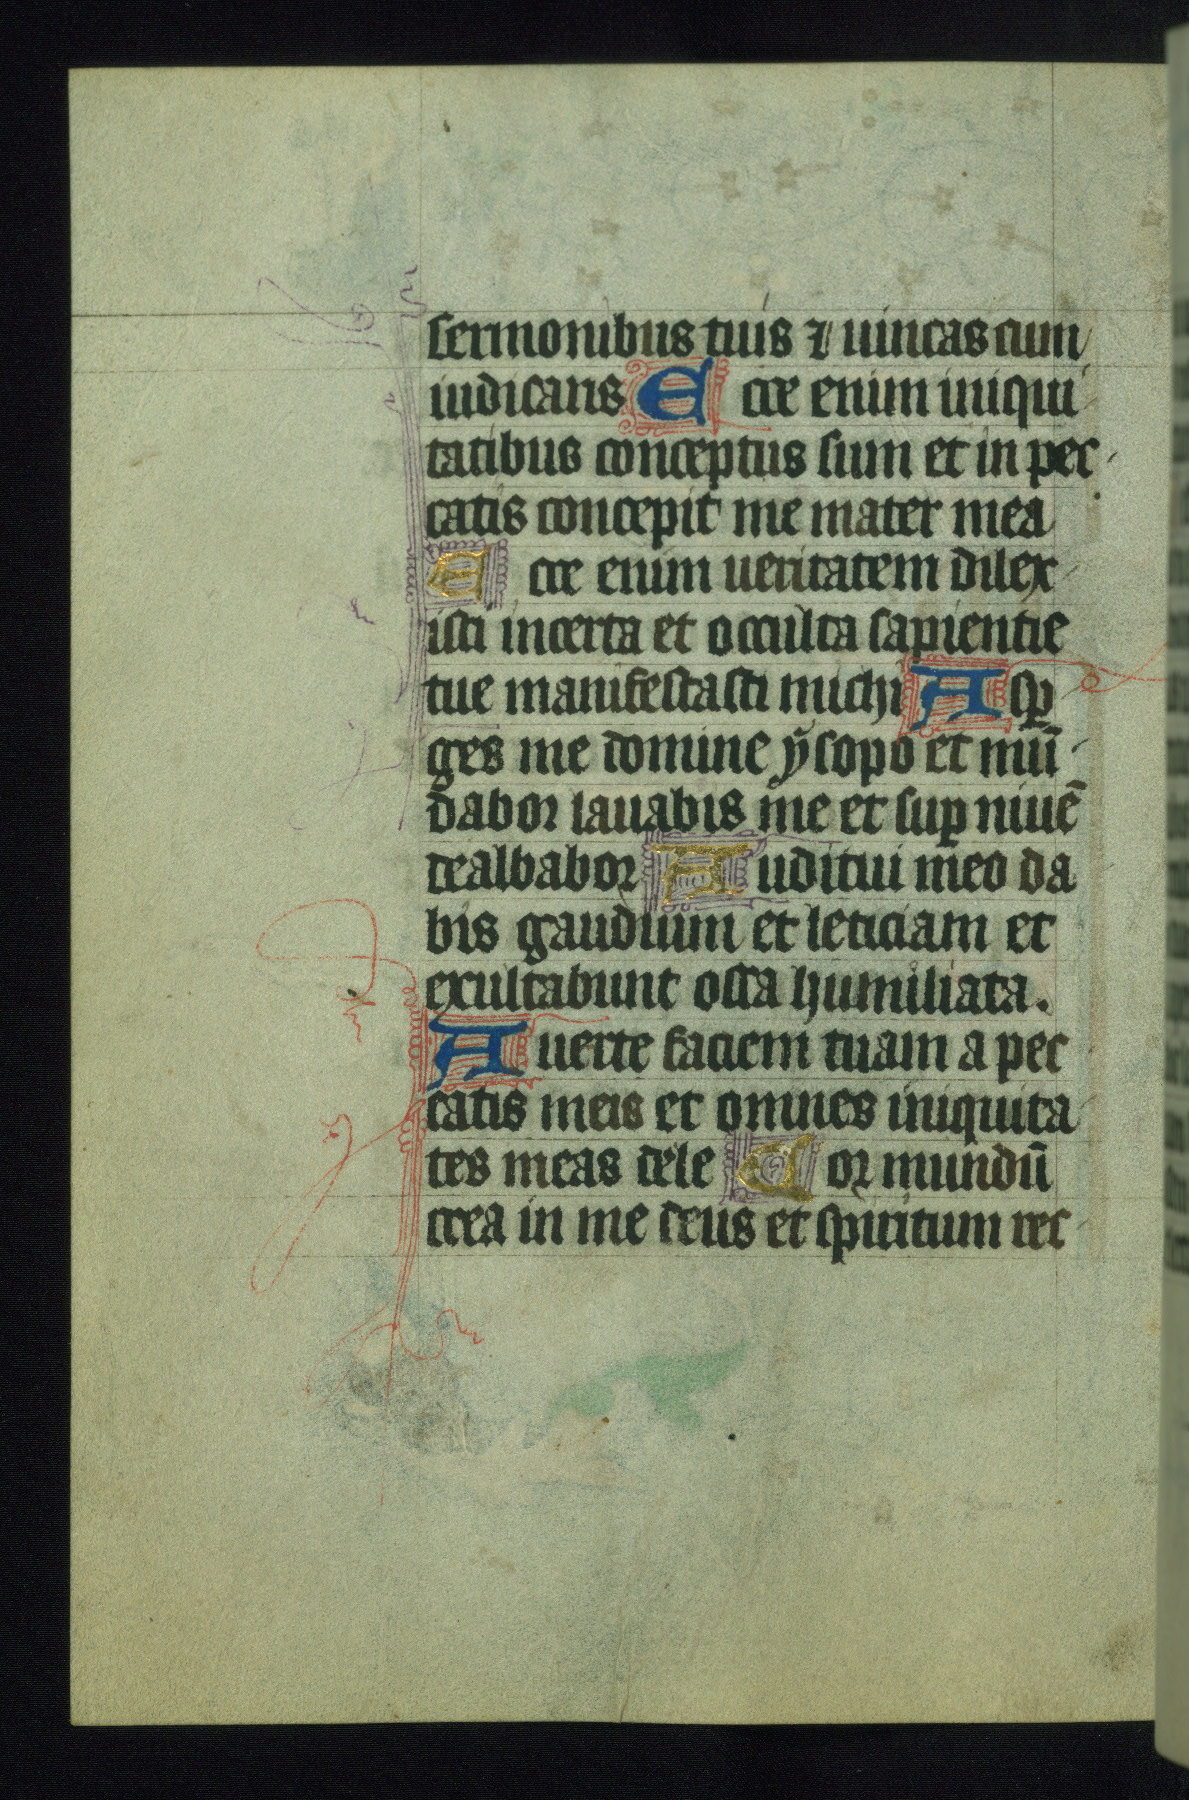 sermonibus tuis ⁊ uincas cum
iudicaris Ecce enim iniqui
tatibus conceptus sum et in pec
catis concepit me mater mea
Ecce enim ueritatem dilex
isti incerta et occulta sapientie
tue manifestasti michi Asꝑ
ges me domine ẏsopo et mū
dabor lauabis me et suꝑ niuē
dealbabor Auditui meo da
bis gaudium et leticiam et
exultabunt ossa humiliata.
Auerte faciem tuam a pec
catis meis et omnes iniquita
tes meas dele Cor mundū
crea in me deus et spiritum rec